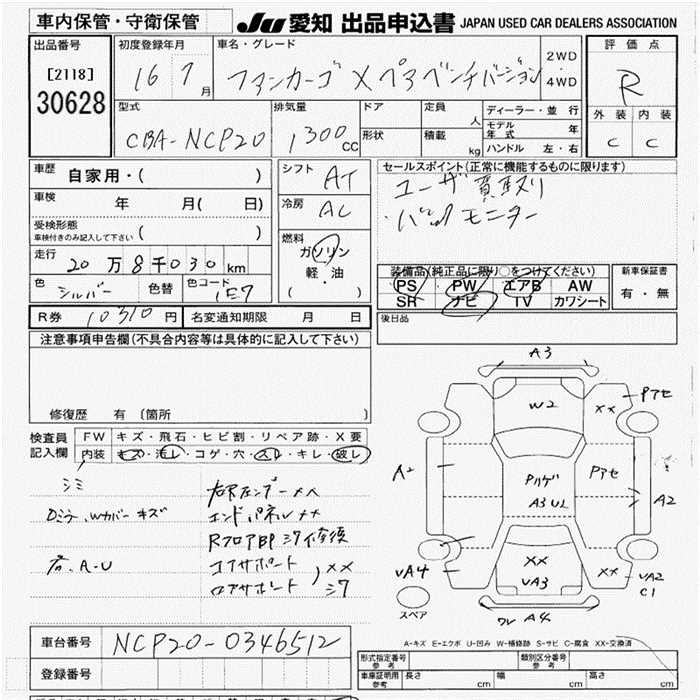 車内保管・守衛保管
JU 愛知 出品申込書 JAPAN USED CAR DEALERS ASSOCIATION
出品番号 初度登録年月 車名・グレード 2WD 評価点
[2118] 16 7 月 ファンカーゴ X ペアベンチバージョン 4WD R
30628 型式 排気量 ドア 定員 人 ディーラー・並行 外装 内装
CBA-NCP20 1300 cc 形状 積載 kg モデル年式 年 C C
ハンドル 左・右
車歴 自家用・( )
車検 年 月( 日)
受検形態 ( )
車検付きのみ記入して下さい
走行 20万8千030 km
色 シルバー 色替 色コード 1E7
R券 10310円 名変通知期限 月 日
シフト AT
冷房 AC
燃料 ガソリン
軽・油
( )
セールスポイント(正常に機能するものに限ります)
ユーザー買取り
・バックモニター
装備品(純正品に限り○をつけてください) 新車保証書
PS PW エアB AW 有・無
SR ナビ TV カワシート
後日品
注意事項申告欄(不具合内容等は具体的に記入して下さい)
修復歴 有 (箇所 )
検査員 FW キズ・飛石・ヒビ割・リペア跡・X要
記入欄 内装 キズ・汚レ・コゲ・穴・スレ・キレ・破レ
シミ
キズ
エンドパネル XX
Rフロア
コアサポート XX
ロアサポート
A3
W2
XX
Pアセ
A2
Pハゲ
A3 U2
Pアセ
A2
VA4
XX
VA3
XX
VA2
C1
A4
スペア
A-キズ E-エクボ U-凹み W-補修跡 S-サビ C-腐食 XX-交換済
車台番号 NCP20-0346512
登録番号
形式指定番号 参考 類別区分番号 参考
車庫証明用 参考 長さ cm 幅 cm 高さ cm